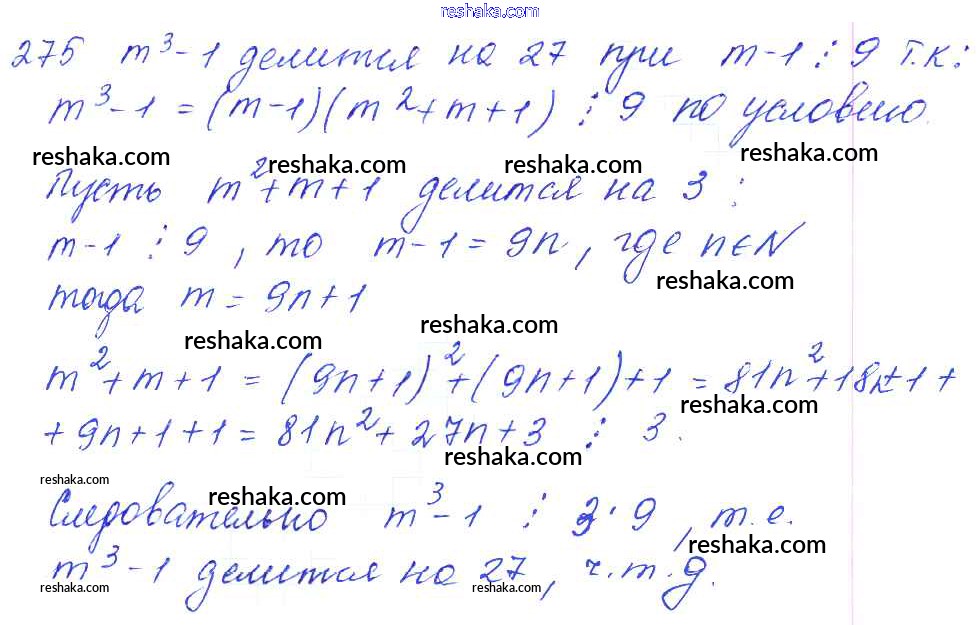 reshaka.com
275 m³-1 делится на 27 при m-1 ⋮ 9 т.к:
m³-1 = (m-1)(m²+m+1) ⋮ 9 по условию.
reshaka.com reshaka.com reshaka.com reshaka.com
Пусть m²+m+1 делится на 3 :
m-1 ⋮ 9, то m-1 = 9n, где n∈N
reshaka.com
тогда m = 9n+1
reshaka.com reshaka.com
m²+m+1 = (9n+1)²+(9n+1)+1 = 81n²+18n+1+
reshaka.com
+9n+1+1 = 81n²+27n+3 ⋮ 3.
reshaka.com
reshaka.com reshaka.com
Следовательно m³-1 ⋮ 3·9, т.е.
reshaka.com
m³-1 делится на 27, ч.т.д.
reshaka.com reshaka.com reshaka.com